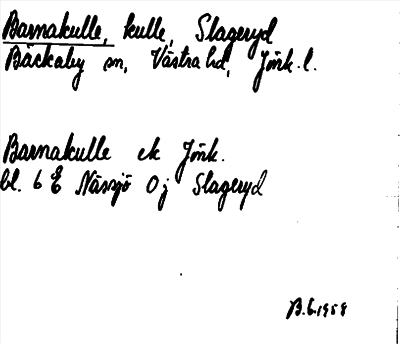 Barnakulle, kulle, Slageryd
Bäckaby sn, Västra hd, Jönk. l.
Barnakulle ek Jönk.
bl. 6 E Nässjö 0 j Slageryd
B.G. 1959